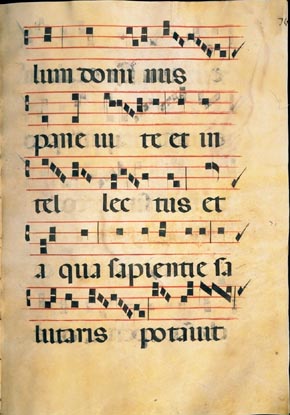 lum domi nus
pane vi te et in
tel lec tus et
a qua sapientie sa
lutaris potavit